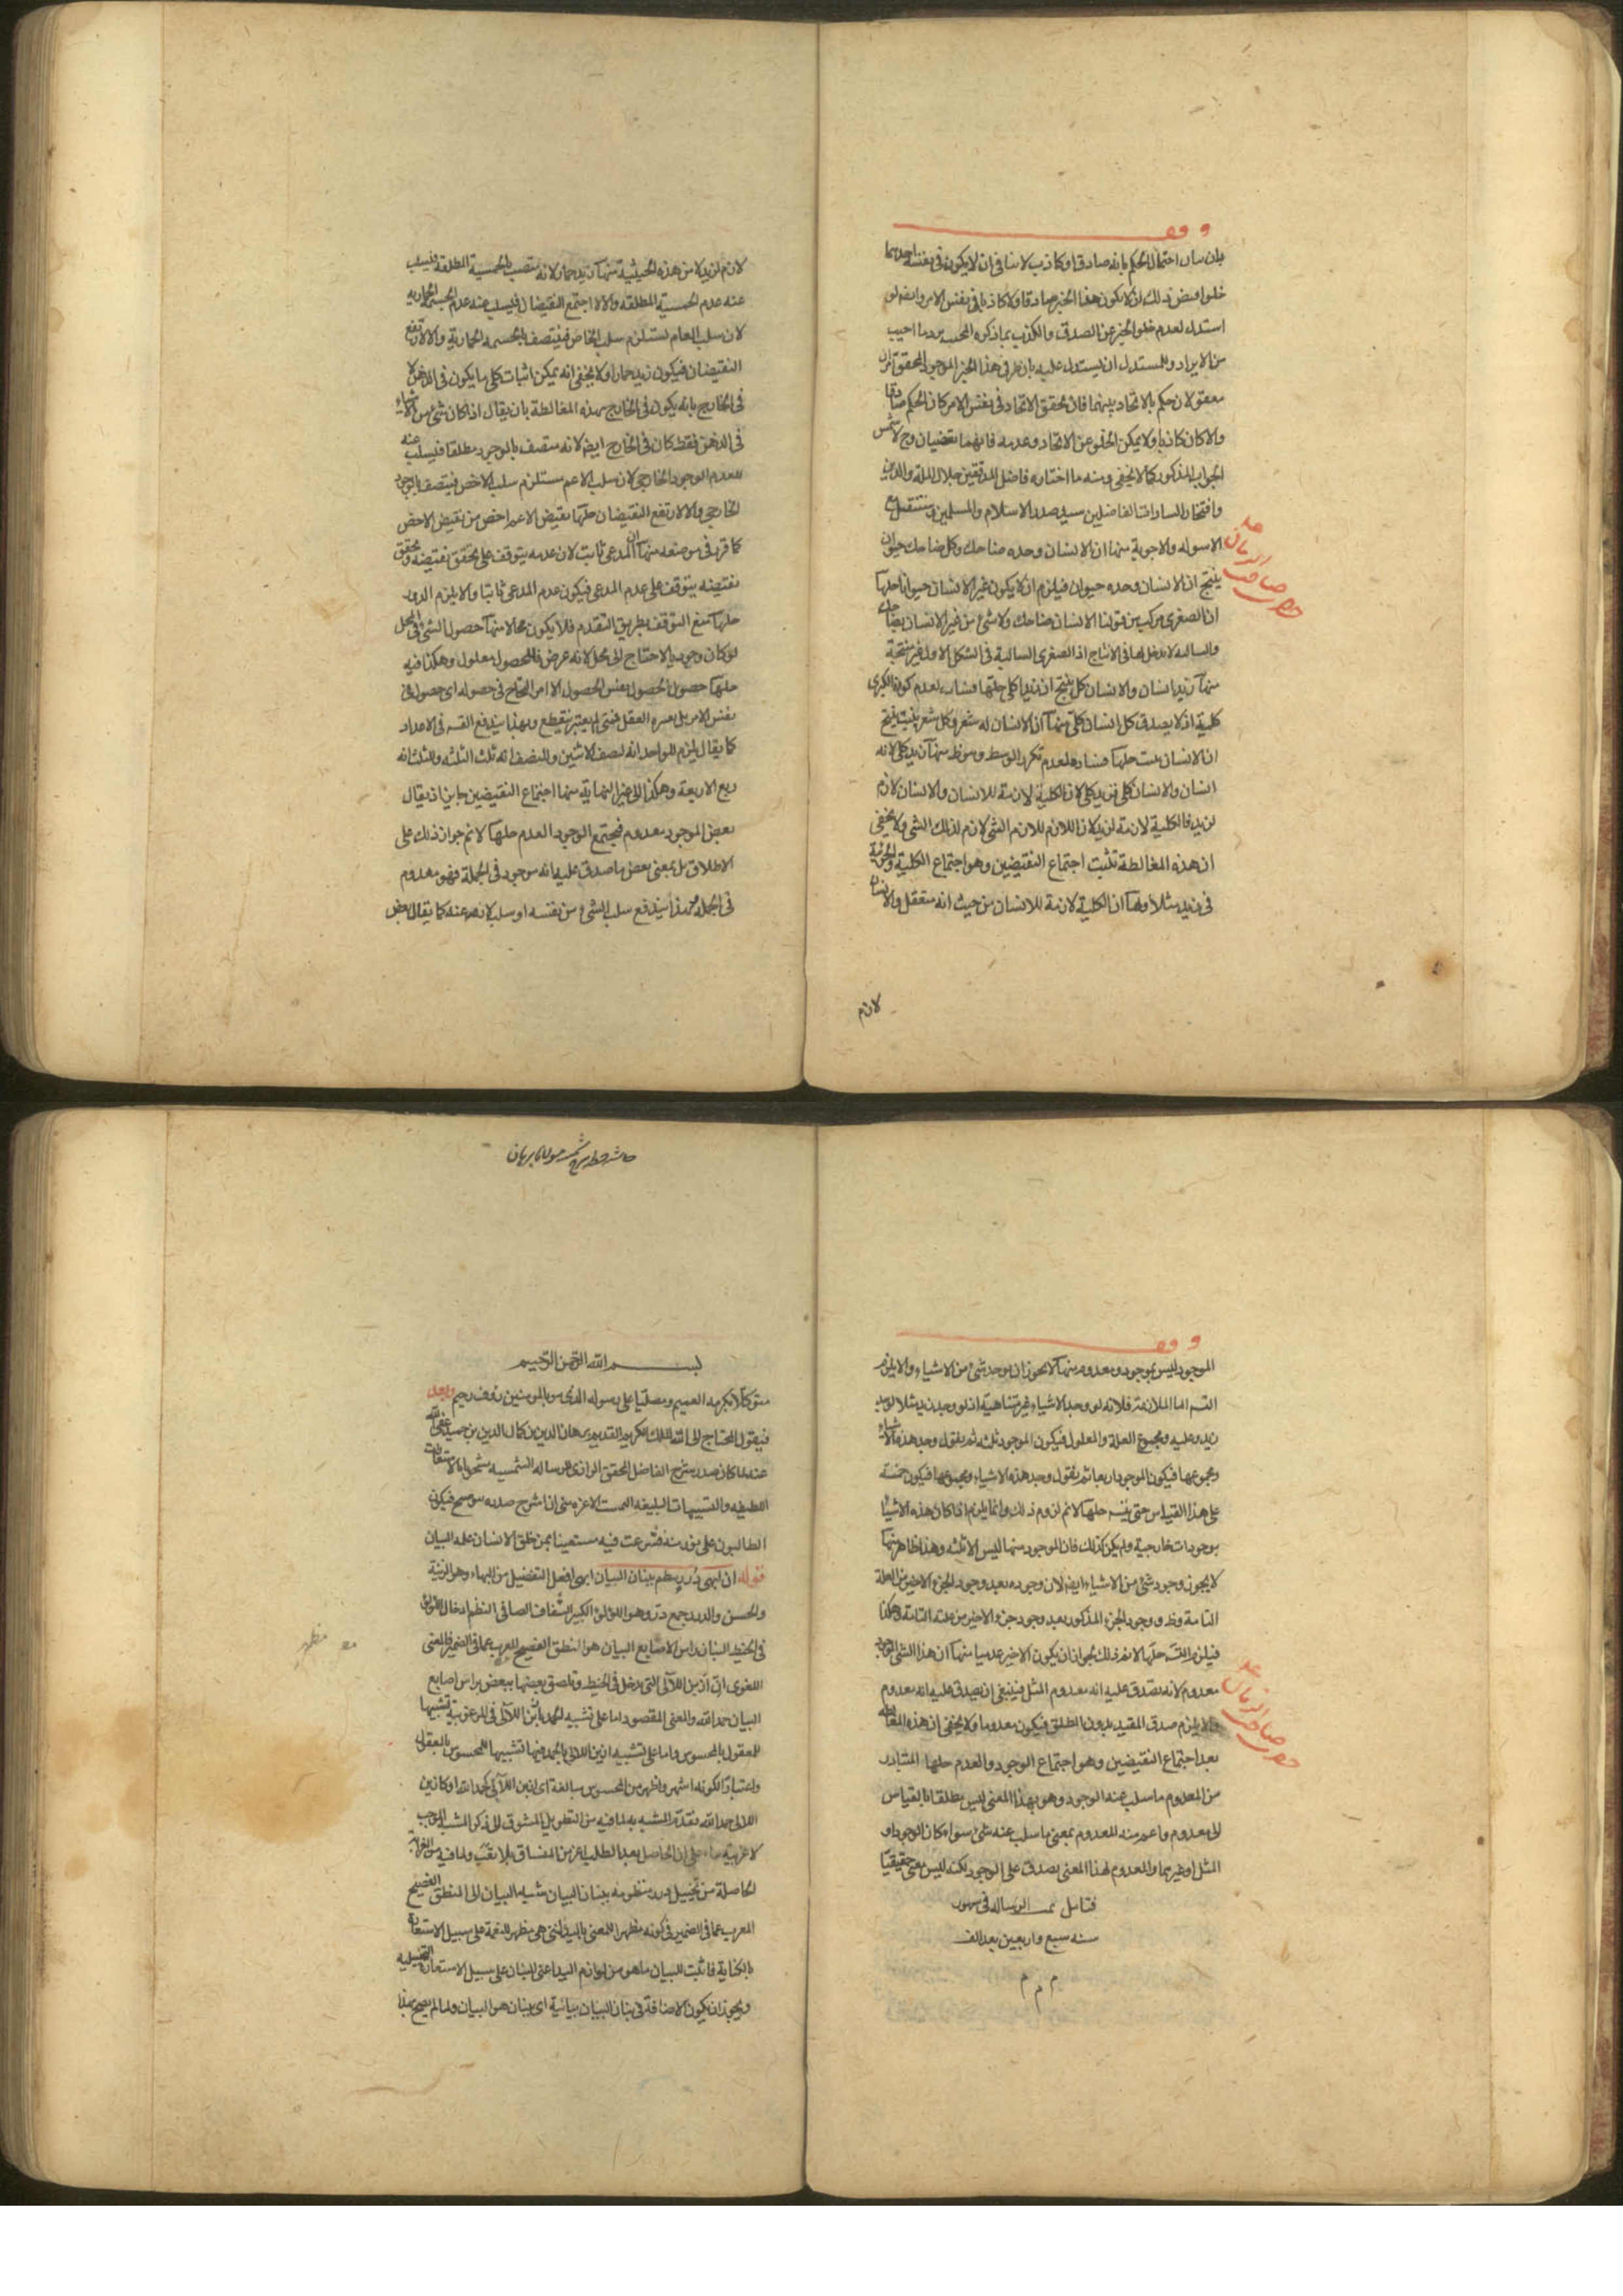 وقف
بان بيان احتمال الحكم بانه صادق او كاذب لا ينافى ان لا يكون فى نفسه احدهما
خلوا وبعض ذلك ان لا يكون هذا الخبر صادقا ولا كاذبا فى نفس الامر وايضا لو
استدل لعدم خلو الخبر عن الصدق والكذب بما ذكره المحشى يرد ما اجيب
من الايراد وللمستدل ان يستدل عليه بان طرفى هذا الخبر الموجود المحقق
لان حكم بالاتحاد بينهما فان تحقق الاتحاد فى نفس الامر كان الحكم صادقا
والا كان كاذبا ولا يمكن الخلو عن الاتحاد وعدمه فانهما نقيضان وح لا
الجواب المذكور كما لا يخفى ومنه ما اختاره فاضل المدققين جلال الملة والدين
وافتخار السادات الفاضلين سيد صدر الاسلام والمسلمين
الاسوله والاجوبة منها ان الانسان وحده ضاحك وكل ضاحك حيوان
ينتج ان الانسان وحده حيوان فيلزم ان لا يكون غير الانسان حيوانا حلها
ان الصغرى مركب من قولنا الانسان ضاحك ولا شئ من غير الانسان بضاحك
والسالبه لا دخل لها فى الانتاج اذ الصغرى السالبة فى الشكل الاول غير منتجة
منها زيد انسان والانسان كلى ينتج ان زيدا كلى حلها فساده لعدم كون الكبرى
كلية اذ لا يصدق كل انسان كلى منها ان الانسان له شعر وكل شعر ينبت ينتج
ان الانسان ينبت حلها فساده لعدم تكرر الوسط وهو ظ منها زيد كلى لانه
انسان والانسان كلى فزيد كلى لان الكلية لازمة للانسان والانسان لازم
لزيد فالكلية لازمة لزيد لان اللازم للازم الشئ لازم لذلك الشئ ولا يخفى
ان هذه المغالطة تثبت اجتماع النقيضين وهو اجتماع الكلية والجزئية
فى زيد مثلا وحلها ان الكلية لازمة للانسان من حيث انه متعقل والانسان
لازم
لازم لزيد لا من هذه الحيثية منها زيد حمار لانه متصف بالجسمية المطلقة فيسلب
عنه عدم الجسمية المطلقه والا لاجتمع النقيضان فيسلب عنه عدم الجسمية الحمارية
لان سلب العام يستلزم سلب الخاص فيتصف بالجسمية الحمارية والا لارتفع
النقيضان فيكون زيد حمارا ولا يخفى انه يمكن اثبات كل ما يكون فى الذهن لا
فى الخارج بانه يكون فى الخارج بهذه المغالطة بان يقال اذا كان شئ من الاشياء
فى الذهن فقط كان فى الخارج ايضا لانه متصف بالوجود مطلقا فيسلب عنه
العدم الوجود الخارجى لان سلب الاعم مستلزم سلب الاخص فيتصف بالوجود
الخارجى والا لارتفع النقيضان حلها نقيض الاعم اخص من نقيض الاخص
كما قرر فى موضعه منها ان المدعى ثابت لان عدمه يتوقف على تحقق نقيضه وتحقق
نقيضه يتوقف على عدم المدعى فيكون عدم المدعى ثابتا والا يلزم الدور
حلها منع التوقف بطريق التقدم فلا يكون محالا منها حصول الشئ فى المحل
لو كان وجوديا لاحتاج الى محل لانه عرض فللحصول معلول وهكذا فيه
حلها حصول الحصول نفس الحصول الامر المحتاج فى حصوله اى حصول فى
نفس الامر بل يعتبره العقل فمتى لم يعتبر ينقطع وبهذا يندفع التسـ فى الاعداد
كما يقال يلزم للواحد انه نصف الاثنين وللنصف انه ثلث الثلثه وللثلث انه
ربع الاربعة وهكذا الى غير النهاية منها اجتماع النقيضين جايز اذ يقال
بعض الموجود معدوم فيجتمع الوجود العدم حلها لا نم جواز ذلك على
الاطلاق بل بمعنى بعض ما صدق عليه انه موجود فى الجملة فهو معدوم
فى الجملة وبهذا يندفع سلب الشئ من نفسه او سلب لازمه عنه كما يقال بعض
وقف
الموجود ليس بموجود ومعدوم منها لا يجوز ان يوجد شئ من الاشياء والا يلزم
التسـ اما الملازمة فلانه لو وجد الاشياء غير متناهية اذ لو وجد زيد مثلا لوجد
زيد وعليه ومجموع العلة والمعلول فيكون الموجود ثلثه ثم نقول وجد هذه الاشياء
ومجموعها فيكون الموجود اربعا ثم نقول وجد هذه الاشياء ومجموعها فيكون خمسة
على هذا القياس حتى يتسـ حلها لا نم لزوم ذلك وانما يلزم اذا كان هذه الاشياء
موجودات خارجية ولم يكن كذلك فان الموجود منها ليس الا ثلثه وهذا ظاهر منها
لا يجوز وجود شئ من الاشياء ايضا لان وجوده بعد وجود الجزء الاخير من العلة
التامة وظ ووجود الجزء المذكور بعد وجود جزء الاخير من علته التامة وهكذا
فيلزم التسـ حلها لا نم ذلك لجواز ان يكون الاخير عدميا منها ان هذا الشئ الموجود
معدوم لانه يصدق عليه انه معدوم المثل فينبغى ان يصدق عليه انه معدوم
والا يلزم صدق المقيد بدون المطلق فيكون معدوما ولا يخفى ان هذه المغالطة
بعد اجتماع النقيضين وهو اجتماع الوجود والعدم حلها المتبادر
من المعدوم ما سلب عنه الوجود وهو بهذا المعنى ليس مطلقا بالقياس
الى معدوم واعم منه المعدوم بمعنى ما سلب عنه شئ سواء كان الوجود او
المثل او غيرهما والمعدوم لهذا المعنى يصدق على الوجود لكنه ليس معنى حقيقيا
فتامل تمت الرساله فى شهور
سنه سبع واربعين بعد الف
م م م
بسم الله الرحمن الرحيم
متوكلا بكرمه العميم ومصليا على رسوله الذى هو بالمومنين رؤف رحيم وبعد
فيقول المحتاج الى الله الملك الكريم القديم برهان الدين بن كمال الدين بن حميد عفى الله
عنه لما كان صدر شرح الفاضل المحقق الرازى للرساله الشمسيه مشحونا بالاستعارات
اللطيفه والتشبيهات البليغه التمست الاعزه منى ان اشرح صدره موضح فيكون
الطالبون على منه فشرعت فيه مستعينا بمن خلق الانسان علمه البيان
قوله ان ابهى درر ينظم ببنان البيان ابهى افعل التفضيل من البهاء وهو الزينة
والحسن والدرر جمع در وهو اللؤلؤ الكبير الشفاف الصافى النظم ادخال اللؤلؤ
فى الخيط البنان راس الاصابع البيان هو النطق الفصيح المعرب عما فى الضمير فالمعنى
اللغوى ان ازين اللآلى التى يدخل فى الخيط وتلصق بعضها ببعض براس اصابع
البيان حمد الله والمعنى المقصود اما على تشبيه الحمد بازين اللآلى فى المرغوبية تشبيها
للمعقول بالمحسوس واما على تشبيه ازين اللآلى بالحمد فيها تشبيها للمحسوس بالمعقول
واعتبارا لكونه اشهر واظهر من المحسوس مبالغة اى ازين اللآلى كحمد الله او كازين
اللالى حمد الله فقدم المشبه به لما فيه من التطويل المشوق الى ذكر المشبه الموجب
الحاصل بعد الطلب اعز من المنساق بلا تعب ولما فيه من الغرابة
الحاصلة من تخييل درر منظومه ببنان البيان شبه البيان الى المنطق الفصيح
المعرب عما فى الضمير فى كونه مظهرا للمعنى باليد التى هى مظهر للنعمة على سبيل الاستعارة
بالكناية فاثبت للبيان ما هو من لوازم اليد اعنى البنان على سبيل الاستعارة التخييلية
ويجوز ان يكون الاضافة فى بنان البيان بيانية اى بنان هو البيان ولما لم يصح بهذا